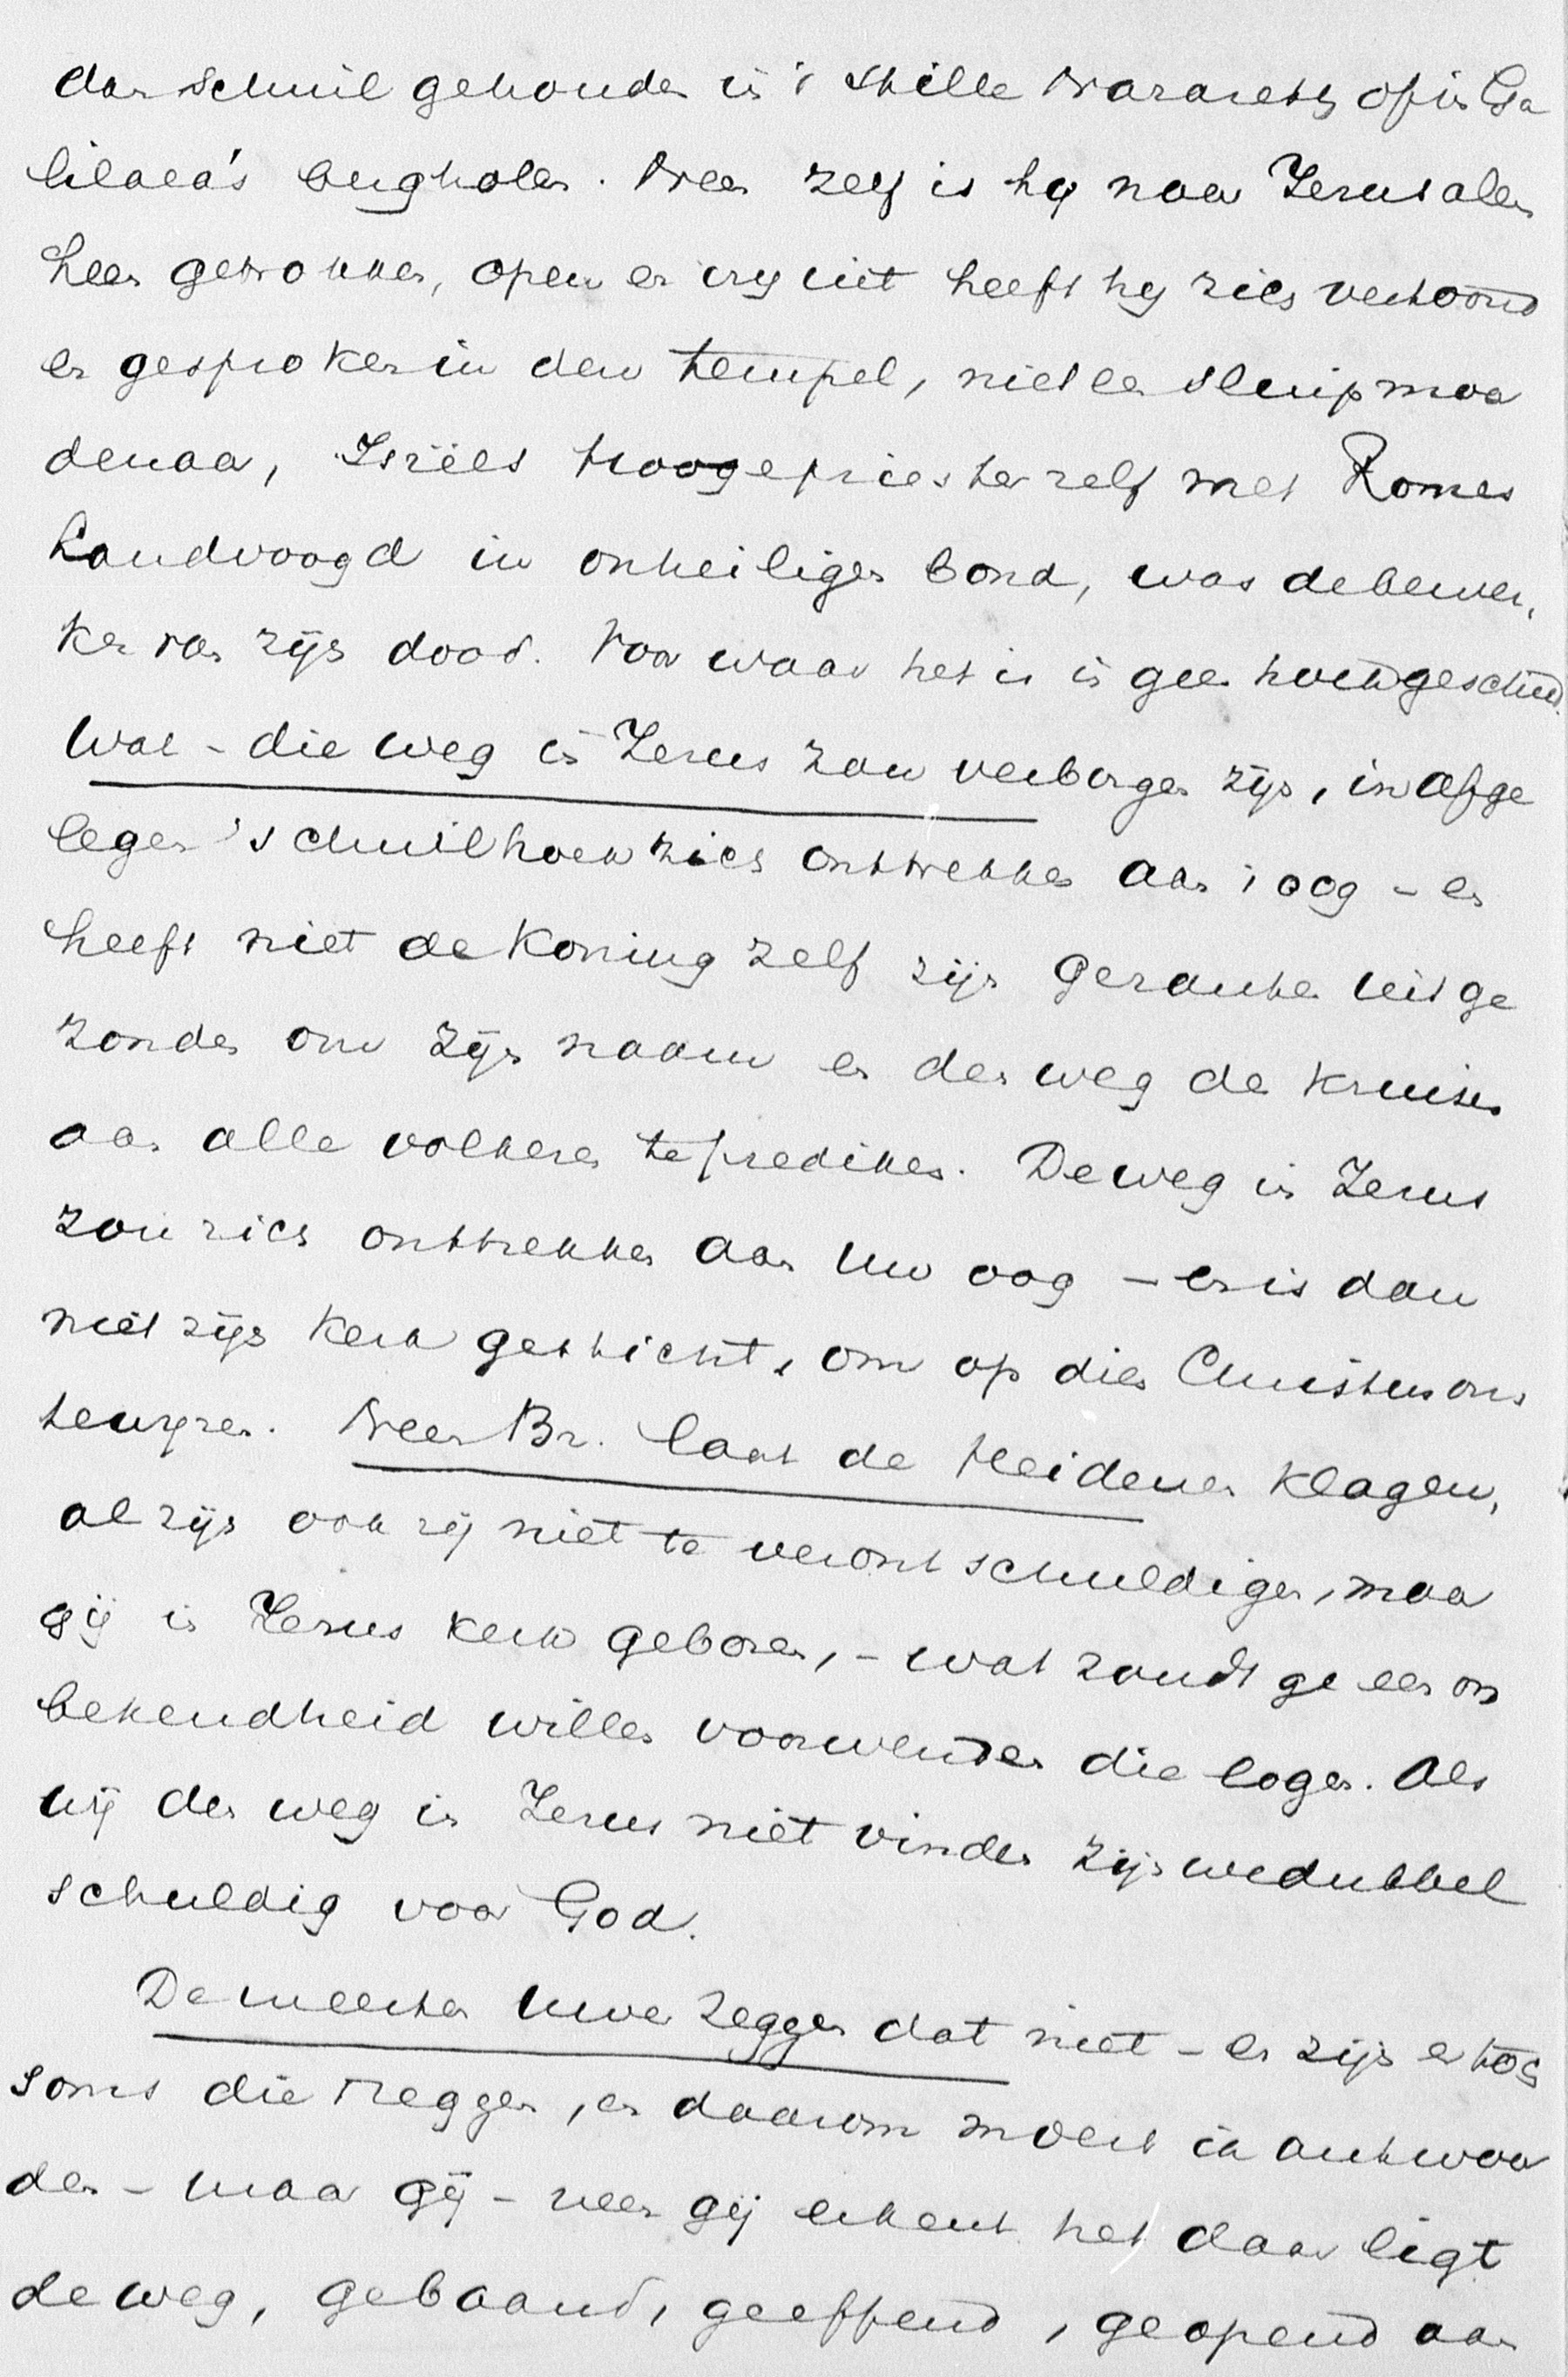 dan schuil gehouden in 't stille Nazareth, of in Ga
lilaea's bergholen. Neen zelf is hij naar Jerusalem
heen getrokken, open en vrij uit heeft hij zich vertoond
en gesproken in den tempel, niet een sluipmoor
denaar, Isrëels Hoogepriester zelf met Romes
Landvoogd in onheiligen bond, was de bewer,
ker van zijn dood. Voor waar het is in geen hoek geschied.
Wat - die weg in Jezus zou verborgen zijn, in afge
legen schuilhoek zich onttrekken aan 't oog - en
heeft niet de Koning zelf zijn Gezanten uitge
zonden om zijn naam en den weg des kruises
aan alle volkeren te prediken. De weg in Jezus
zou zich onttrekken aan Uw oog - en is dan
niet zijn Kerk gesticht, om op dien Christus ons
te wijzen. Neen Br. laat de Heidenen klagen,
al zijn ook zij niet te verontschuldigen, maar
gij in Jezus kerk geboren, - wat zoudt ge een on
bekendheid willen voorwenden die logen. Als
wij den weg in Jezus niet vinden zijn we dubbel
schuldig voor God.
De meesten Uwer zeggen dat niet - er zijn er toch
soms die 't zeggen, en daarom moest ik antwoor
den - maar gij - neen gij erkent het daar ligt
de weg, gebaand, geeffend, geopend aan